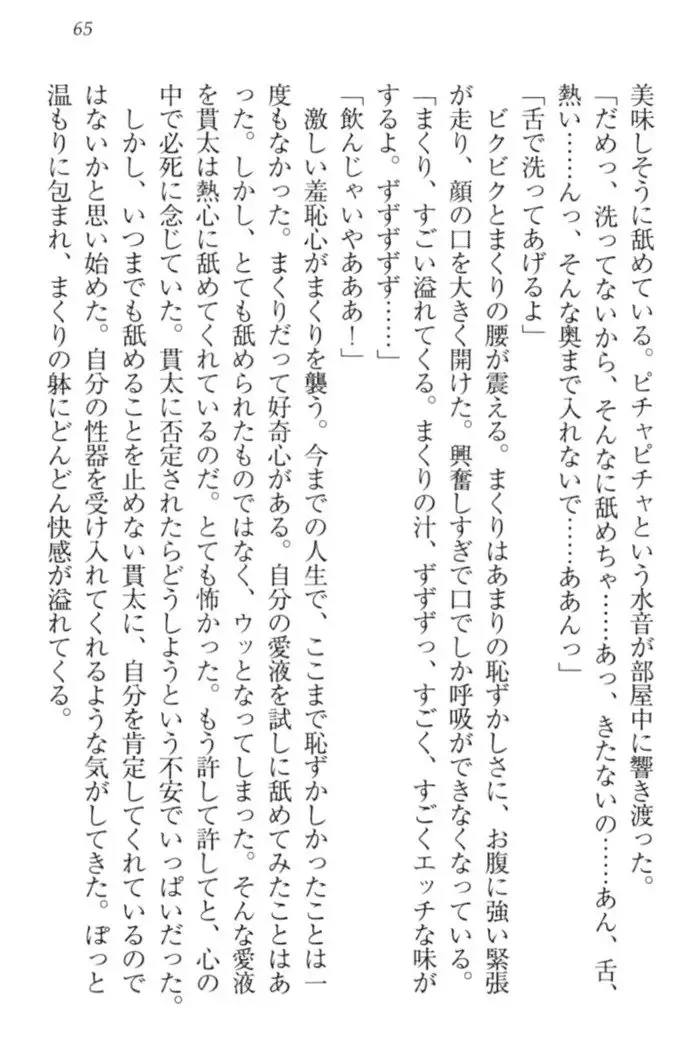 65
美味しそうに舐めている。ピチャピチャという水音が部屋中に響き渡った。
「だめっ、洗ってないから、そんなに舐めちゃ……あっ、きたないの……あん、舌、
熱い……んっ、そんな奥まで入れないで……ああんっ」
「舌で洗ってあげるよ」
ビクビクとまくりの腰が震える。まくりはあまりの恥ずかしさに、お腹に強い緊張
が走り、顔の口を大きく開けた。興奮しすぎで口でしか呼吸ができなくなっている。
「まくり、すごい溢れてくる。まくりの汁、ずずずっ、すごく、すごくエッチな味が
するよ。ずずずずず……」
「飲んじゃいやあああ！」
激しい羞恥心がまくりを襲う。今までの人生で、ここまで恥ずかしかったことは一
度もなかった。まくりだって好奇心がある。自分の愛液を試しに舐めてみたことはあ
った。しかし、とても舐められたものではなく、ウッとなってしまった。そんな愛液
を貫太は熱心に舐めてくれているのだ。とても怖かった。もう許して許してと、心の
中で必死に念じていた。貫太に否定されたらどうしようという不安でいっぱいだった。
しかし、いつまでも舐めることを止めない貫太に、自分を肯定してくれているので
はないかと思い始めた。自分の性器を受け入れてくれるような気がしてきた。ぽっと
温もりに包まれ、まくりの躰にどんどん快感が溢れてくる。